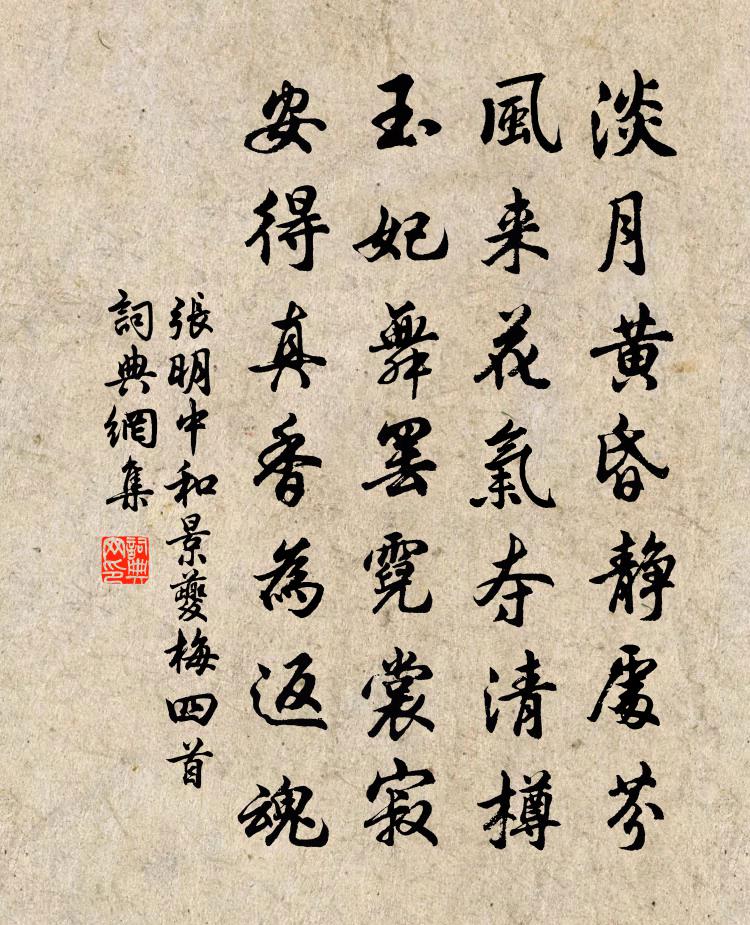 淡月黄昏静處芬
風来花氣夺清樽
玉妃舞罢霓裳寂
安得真香為返魂
張明中和景夔梅四首
詞典網集
詞典
网印